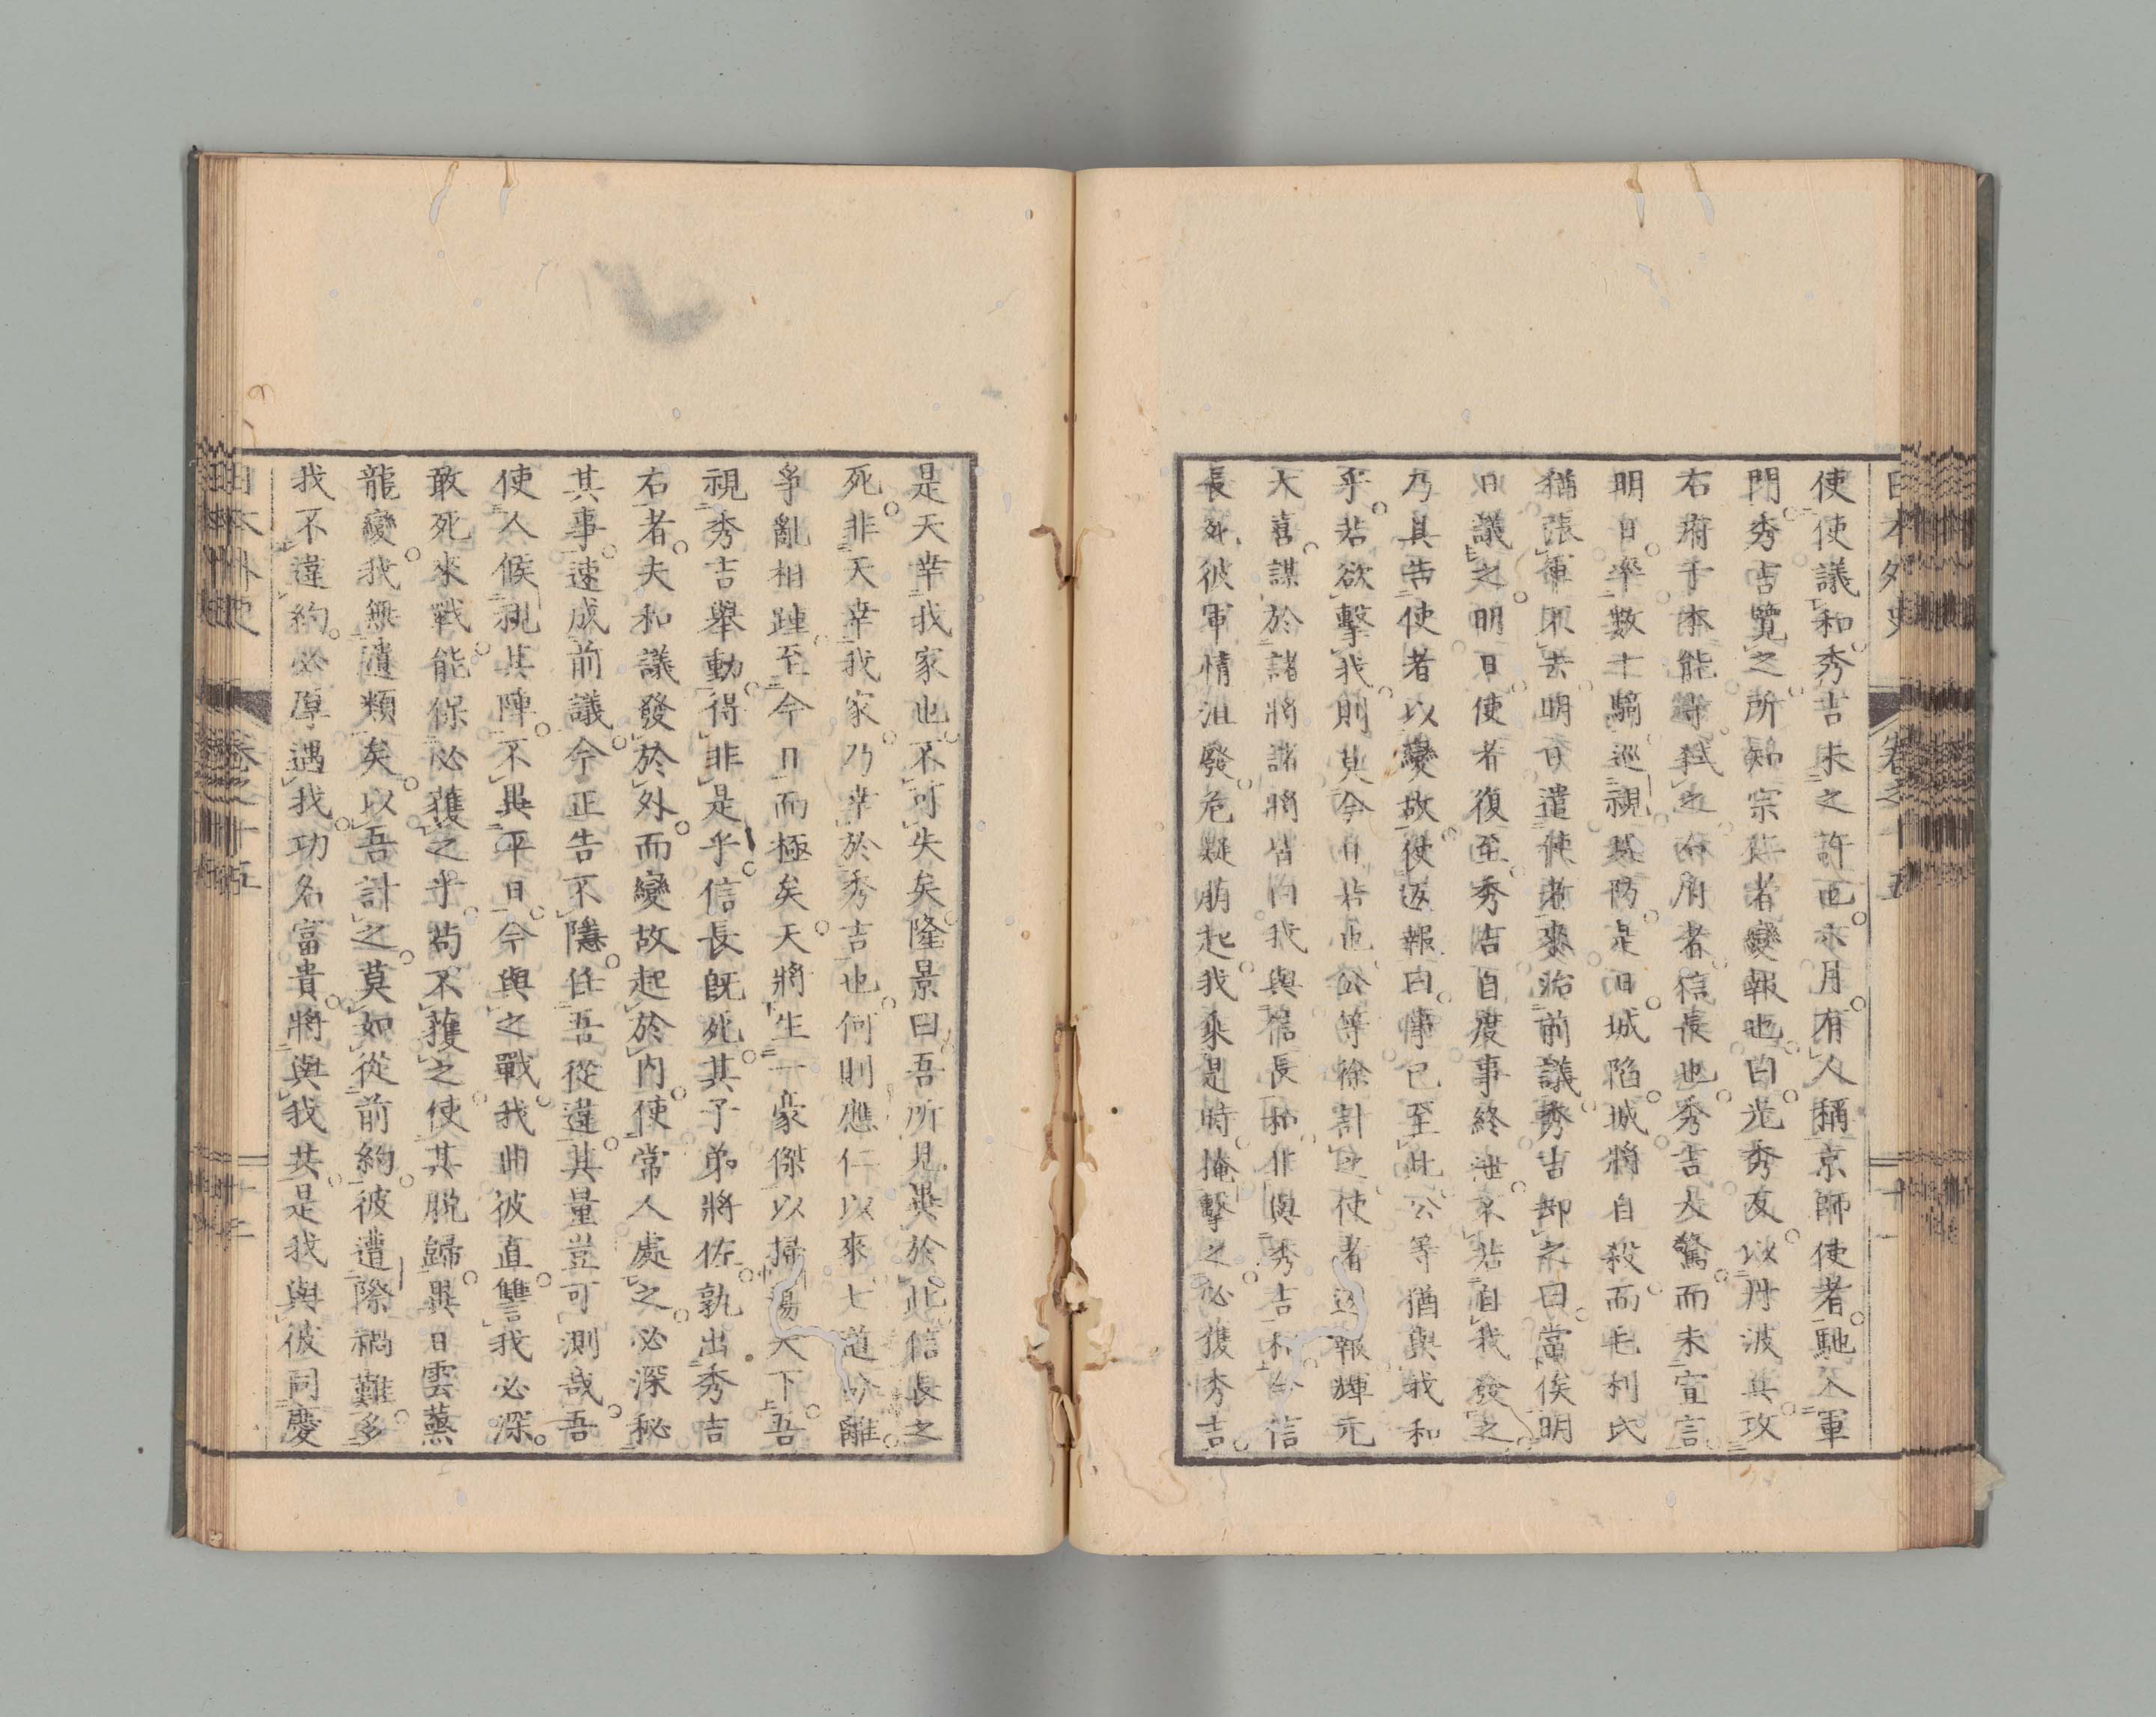 日本外史
卷之十五
十一
使使議和秀吉未之許也六月有人稱京師使者馳入軍
門秀吉覽之所知宗仁者變報也曰光秀反以丹波其攻
右府于本能寺弑之右府者信長也秀吉大驚而未宣言
明日率數十騎巡視堤防是日城陷城將自殺而毛利氏
猶張軍不去明日遣使者來治前議秀吉却之曰當俟明
日議之明日使者復至秀吉自度事終泄不若自我發之
乃具告使者以變故使返報曰事已至此公等猶與我和
乎若欲擊我則莫今日若也公等徐計之使者返報輝元
大喜謀於諸將諸將皆曰我與信長和非與秀吉和今信
長死彼軍情沮廢危疑崩起我乘是時掩擊之必獲秀吉
是天幸我家也不可失矣隆景曰吾所見異於此信長之
死非天幸我家乃幸於秀吉也何則應仁以來七道分離
爭亂相踵至今日而極矣天將生一豪傑以掃蕩天下吾
視秀吉舉動得非是乎信長既死其子弟將佐孰出秀吉
右者夫和議發於外而變故起於内使常人處之必深秘
其事速成前議今正告不隱任吾從違其量豈可測哉吾
使人候視其陣不異平日今與之戰我曲彼直讐我必深
敢死來戰能保必獲之乎苟不獲之使其脱歸異日雲蒸
龍變我無遺類矣以吾計之莫如從前約彼遭際禍難多
我不違約必厚遇我功名富貴將與我共是我與彼同慶
日本外史
卷之十五
十二